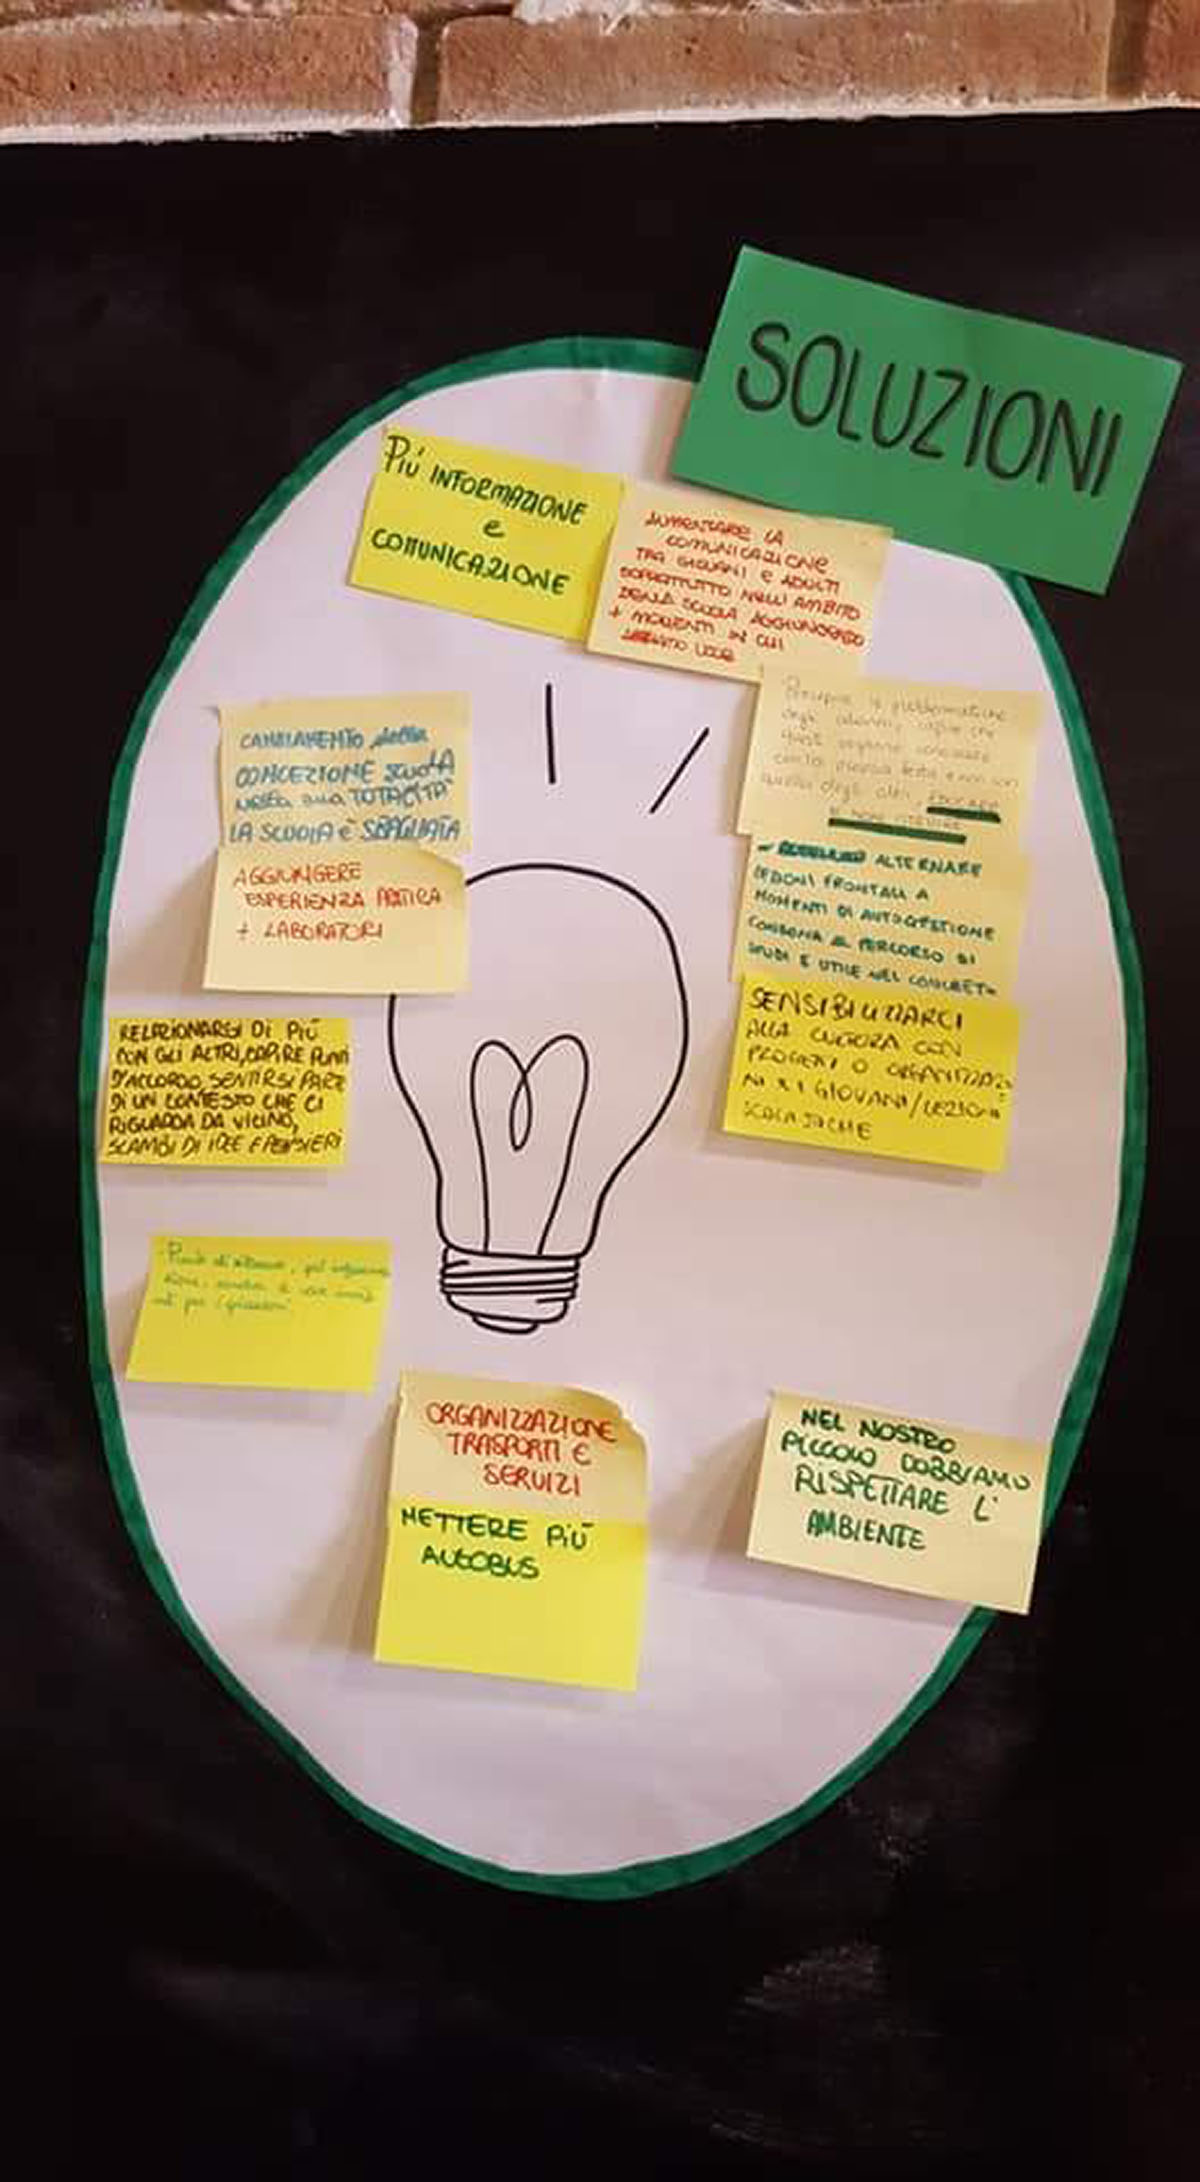 SOLUZIONI
PIÙ INFORMAZIONE
e
COMUNICAZIONE
AUMENTARE LA
COMUNICAZIONE
TRA GIOVANI E ADULTI
SOPRATTUTTO NELL'AMBITO
DELLA SCUOLA AGGIUNGENDO
+ MOMENTI IN CUI
degli alunni, capire che
con la propria testa e non con
quella degli altri,
CAMBIAMENTO della
CONCEZIONE SCUOLA
NELLA SUA TOTALITÀ
LA SCUOLA È SBAGLIATA
AGGIUNGERE
ESPERIENZA PRATICA
+ LABORATORI
ALTERNARE
LEZIONI FRONTALI A
MOMENTI DI AUTOGESTIONE
CONSONA AL PERCORSO DI
STUDI E UTILE NEL CONCRETO
SENSIBILIZZARCI
ALLA CULTURA CON
PROGETTI O ORGANIZZAZIO
NI X I GIOVANI/LEZIONI
SCOLASTICHE
RELAZIONARSI DI PIÙ
CON GLI ALTRI, CAPIRE PUNTI
D'ACCORDO, SENTIRSI PARTE
DI UN CONTESTO CHE CI
RIGUARDA DA VICINO,
SCAMBI DI IDEE E PENSIERI
ORGANIZZAZIONE
TRASPORTI E
SERVIZI
METTERE PIÙ
AUTOBUS
NEL NOSTRO
PICCOLO DOBBIAMO
RISPETTARE L'
AMBIENTE